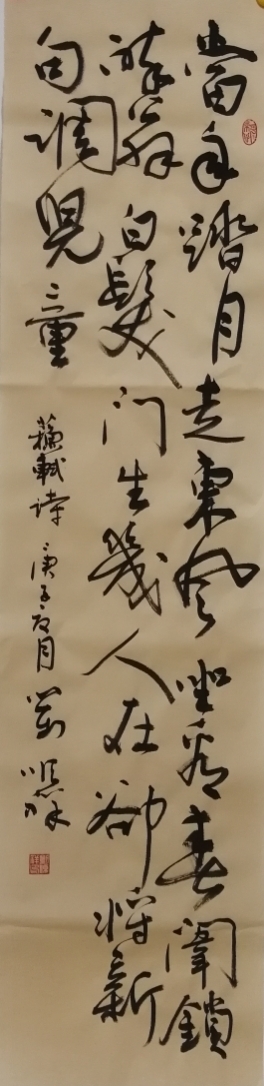 當年踏月走東風坐看春闈鎖
醉翁白髮門生幾人在卻將新
句調兒童
蘇軾詩 庚子夏月 劉